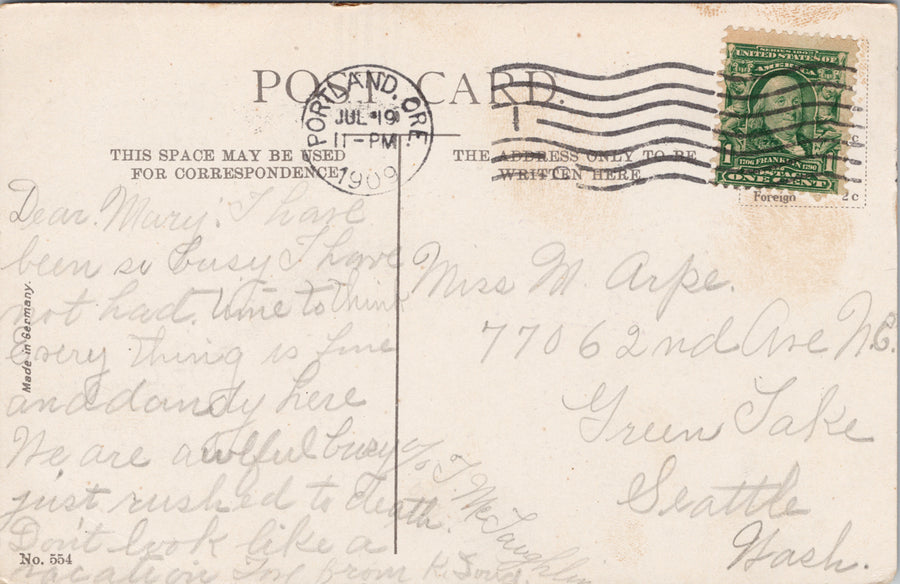 POST CARD.
PORTLAND, ORE.
JUL 19
11-PM
1909
1
SERIES 1902
UNITED STATES OF
AMERICA
1706 FRANKLIN 1790
POSTAGE
ONE CENT
Foreign 2c
THIS SPACE MAY BE USED
FOR CORRESPONDENCE
THE ADDRESS ONLY TO BE
WRITTEN HERE
Dear Mary. I have
been so busy I have
not had time to think
Every thing is fine
and dandy here
We are awlful busy
just rushed to death.
Don't look like a
vacation Love from K.
Miss M. Arpe.
7706 2nd Ave N.E.
Green Lake
Seattle
Wash.
c/o T McLaughlin
Made in Germany.
No. 554